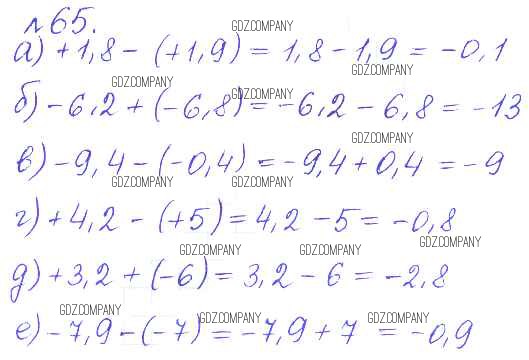 №65.
GDZ.COMPANY
а) +1,8 − (+1,9) = 1,8 − 1,9 = −0,1
GDZ.COMPANY
GDZ.COMPANY GDZ.COMPANY
б) −6,2 + (−6,8) = −6,2 − 6,8 = −13
GDZ.COMPANY
в) −9,4 − (−0,4) = −9,4 + 0,4 = −9
GDZ.COMPANY GDZ.COMPANY
г) +4,2 − (+5) = 4,2 − 5 = −0,8
GDZ.COMPANY GDZ.COMPANY GDZ.COMPANY
д) +3,2 + (−6) = 3,2 − 6 = −2,8
GDZ.COMPANY GDZ.COMPANY GDZ.COMPANY
е) −7,9 − (−7) = −7,9 + 7 = −0,9